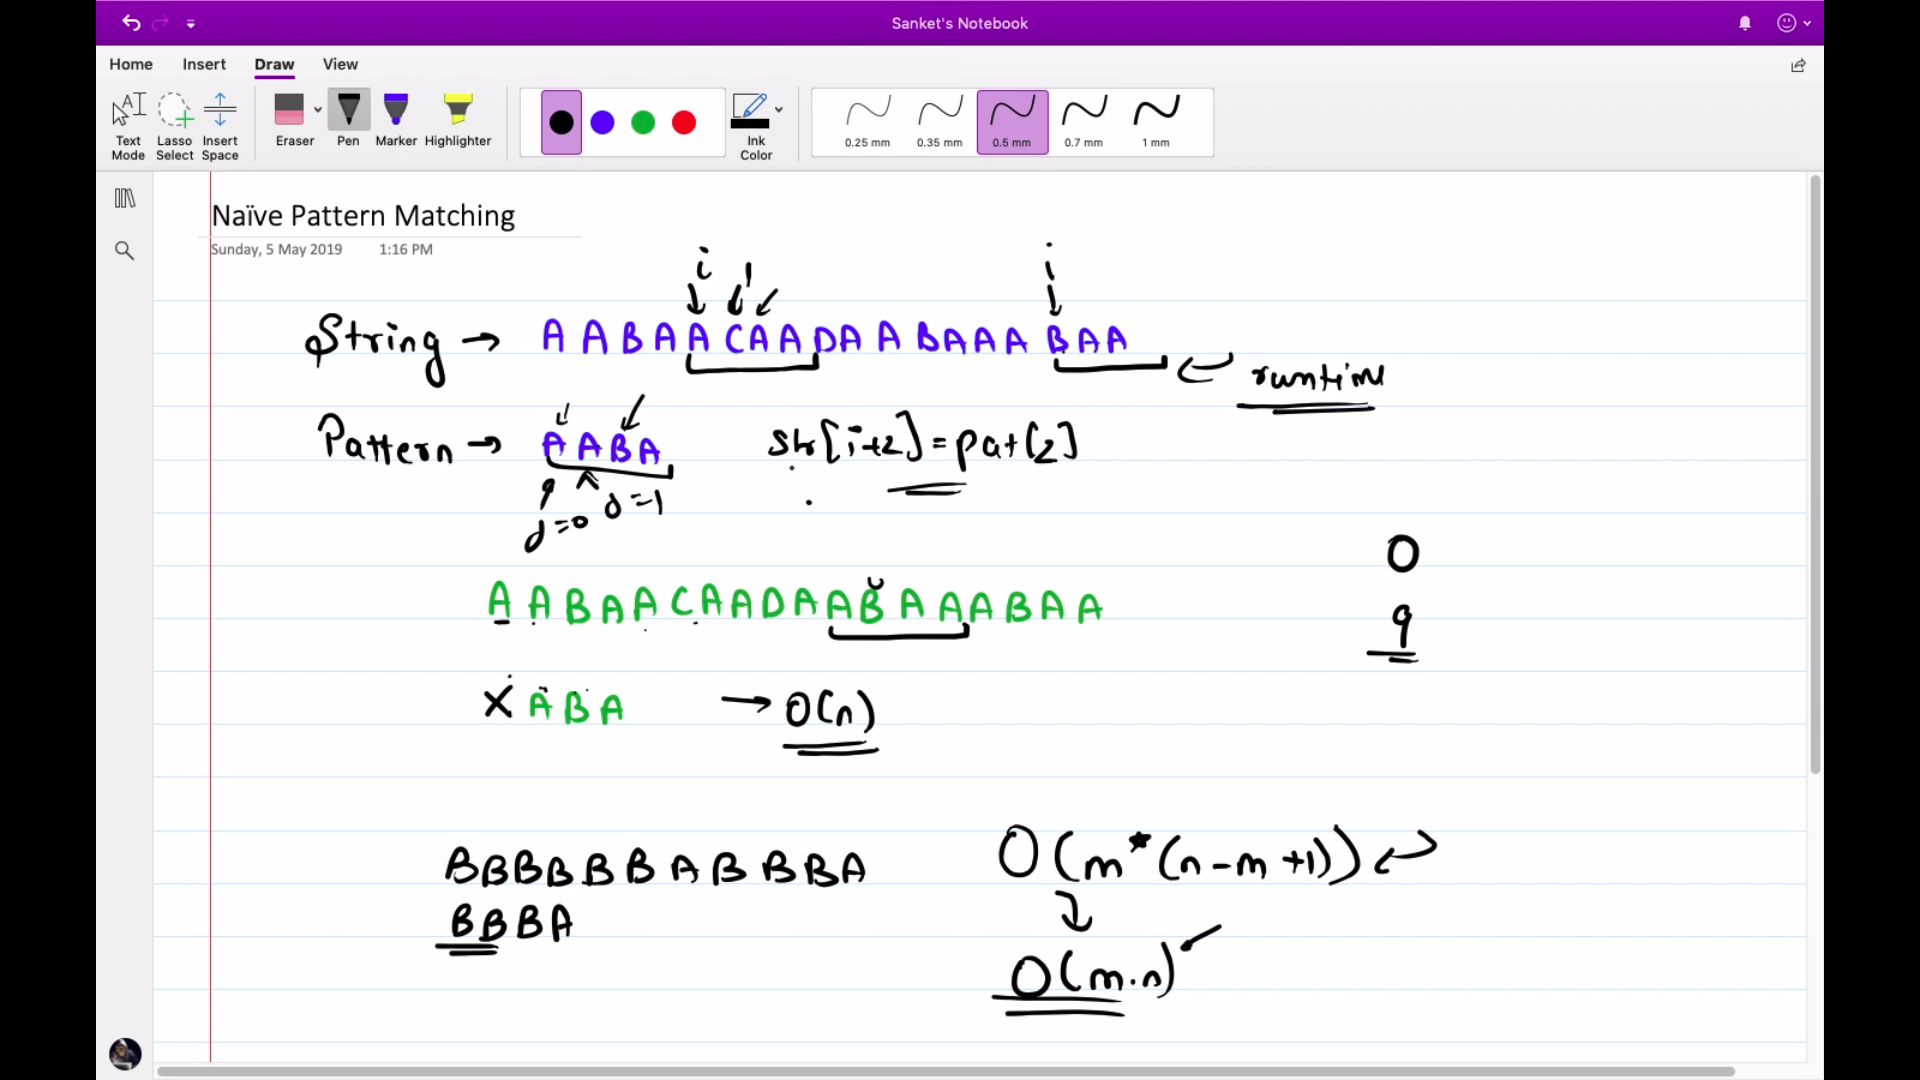 Sanket's Notebook
Home Insert Draw View
Text Mode
Lasso Select
Insert Space
Eraser
Pen
Marker
Highlighter
Ink Color
0.25 mm
0.35 mm
0.5 mm
0.7 mm
1 mm
Naïve Pattern Matching
Sunday, 5 May 2019 1:16 PM
i i
String → A A B A A C A A D A A B A A A B A A
runtime
Pattern → A A B A str[i+2] = pat[2]
j=0 j=1
A A B A A C A A D A A B A A A B A A
0
9
X A B A → O(n)
B B B B B B A B B B A
B B B A
O(m*(n-m+1))
O(m.n)